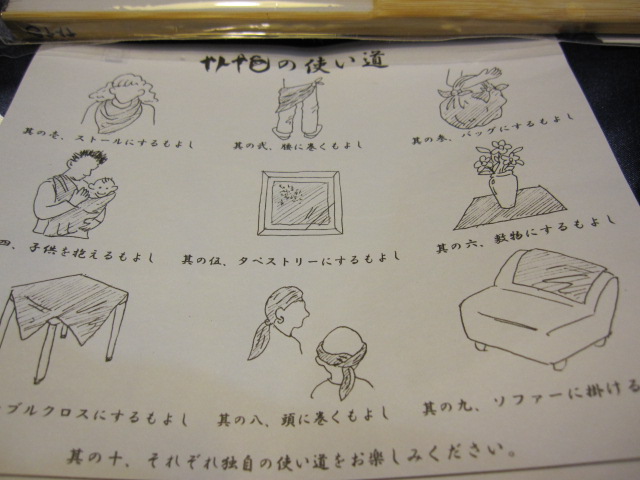 の使い道
其の壱、ストールにするもよし
其の弐、腰に巻くもよし
其の参、バッグにするもよし
四、子供を抱えるもよし
其の伍、タペストリーにするもよし
其の六、敷物にするもよし
ブルクロスにするもよし
其の八、頭に巻くもよし
其の九、ソファーに掛ける
其の十、それぞれ独自の使い道をお楽しみください。